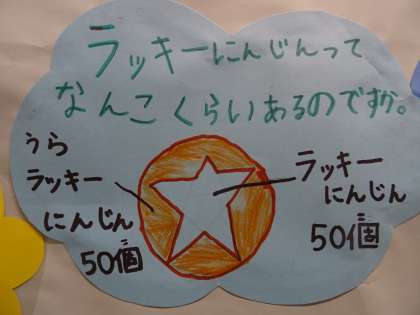 ラッキーにんじんって
なんこくらいあるのですか。
うら
ラッキー
にんじん
50個
ラッキー
にんじん
50個